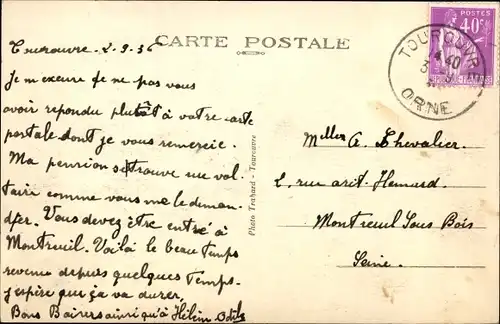 Tourouvre. 2.9.36
CARTE POSTALE
Je m'excuse de ne pas vous
avoir répondu plutôt à votre carte
postale dont je vous remercie.
Ma pension se trouve rue Vol
taire comme vous me le deman-
dez. Vous devez être entré à
Montreuil. Voilà le beau temps
revenu depuis quelques temps.
j'espère que ça va durer.
Bons Baisers ainsi qu'à Hélène Odile
Photo Trahard - Tourouvre
Melles A. Chevalier.
2, rue arist Hemard.
Montreuil Sous Bois
Seine.
POSTES
40c
TOUROUVRE
ORNE